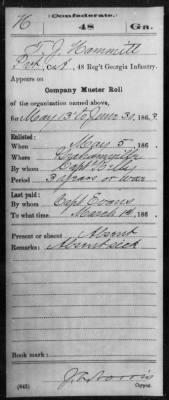 (Confederate.)
H 48 Ga.
T. J. Hammitt
Pvt, Co. A, 48 Reg't Georgia Infantry.
Appears on
Company Muster Roll
of the organization named above,
for May 13 to June 30, 186
Enlisted:
When May 5, 186 .
Where Grahamville
By whom Capt
Period 3 years or war
Last paid:
By whom Capt Evans
To what time March 1st, 186 .
Present or absent Absent
Remarks: Absent sick
Book mark:
(642) Copyist.